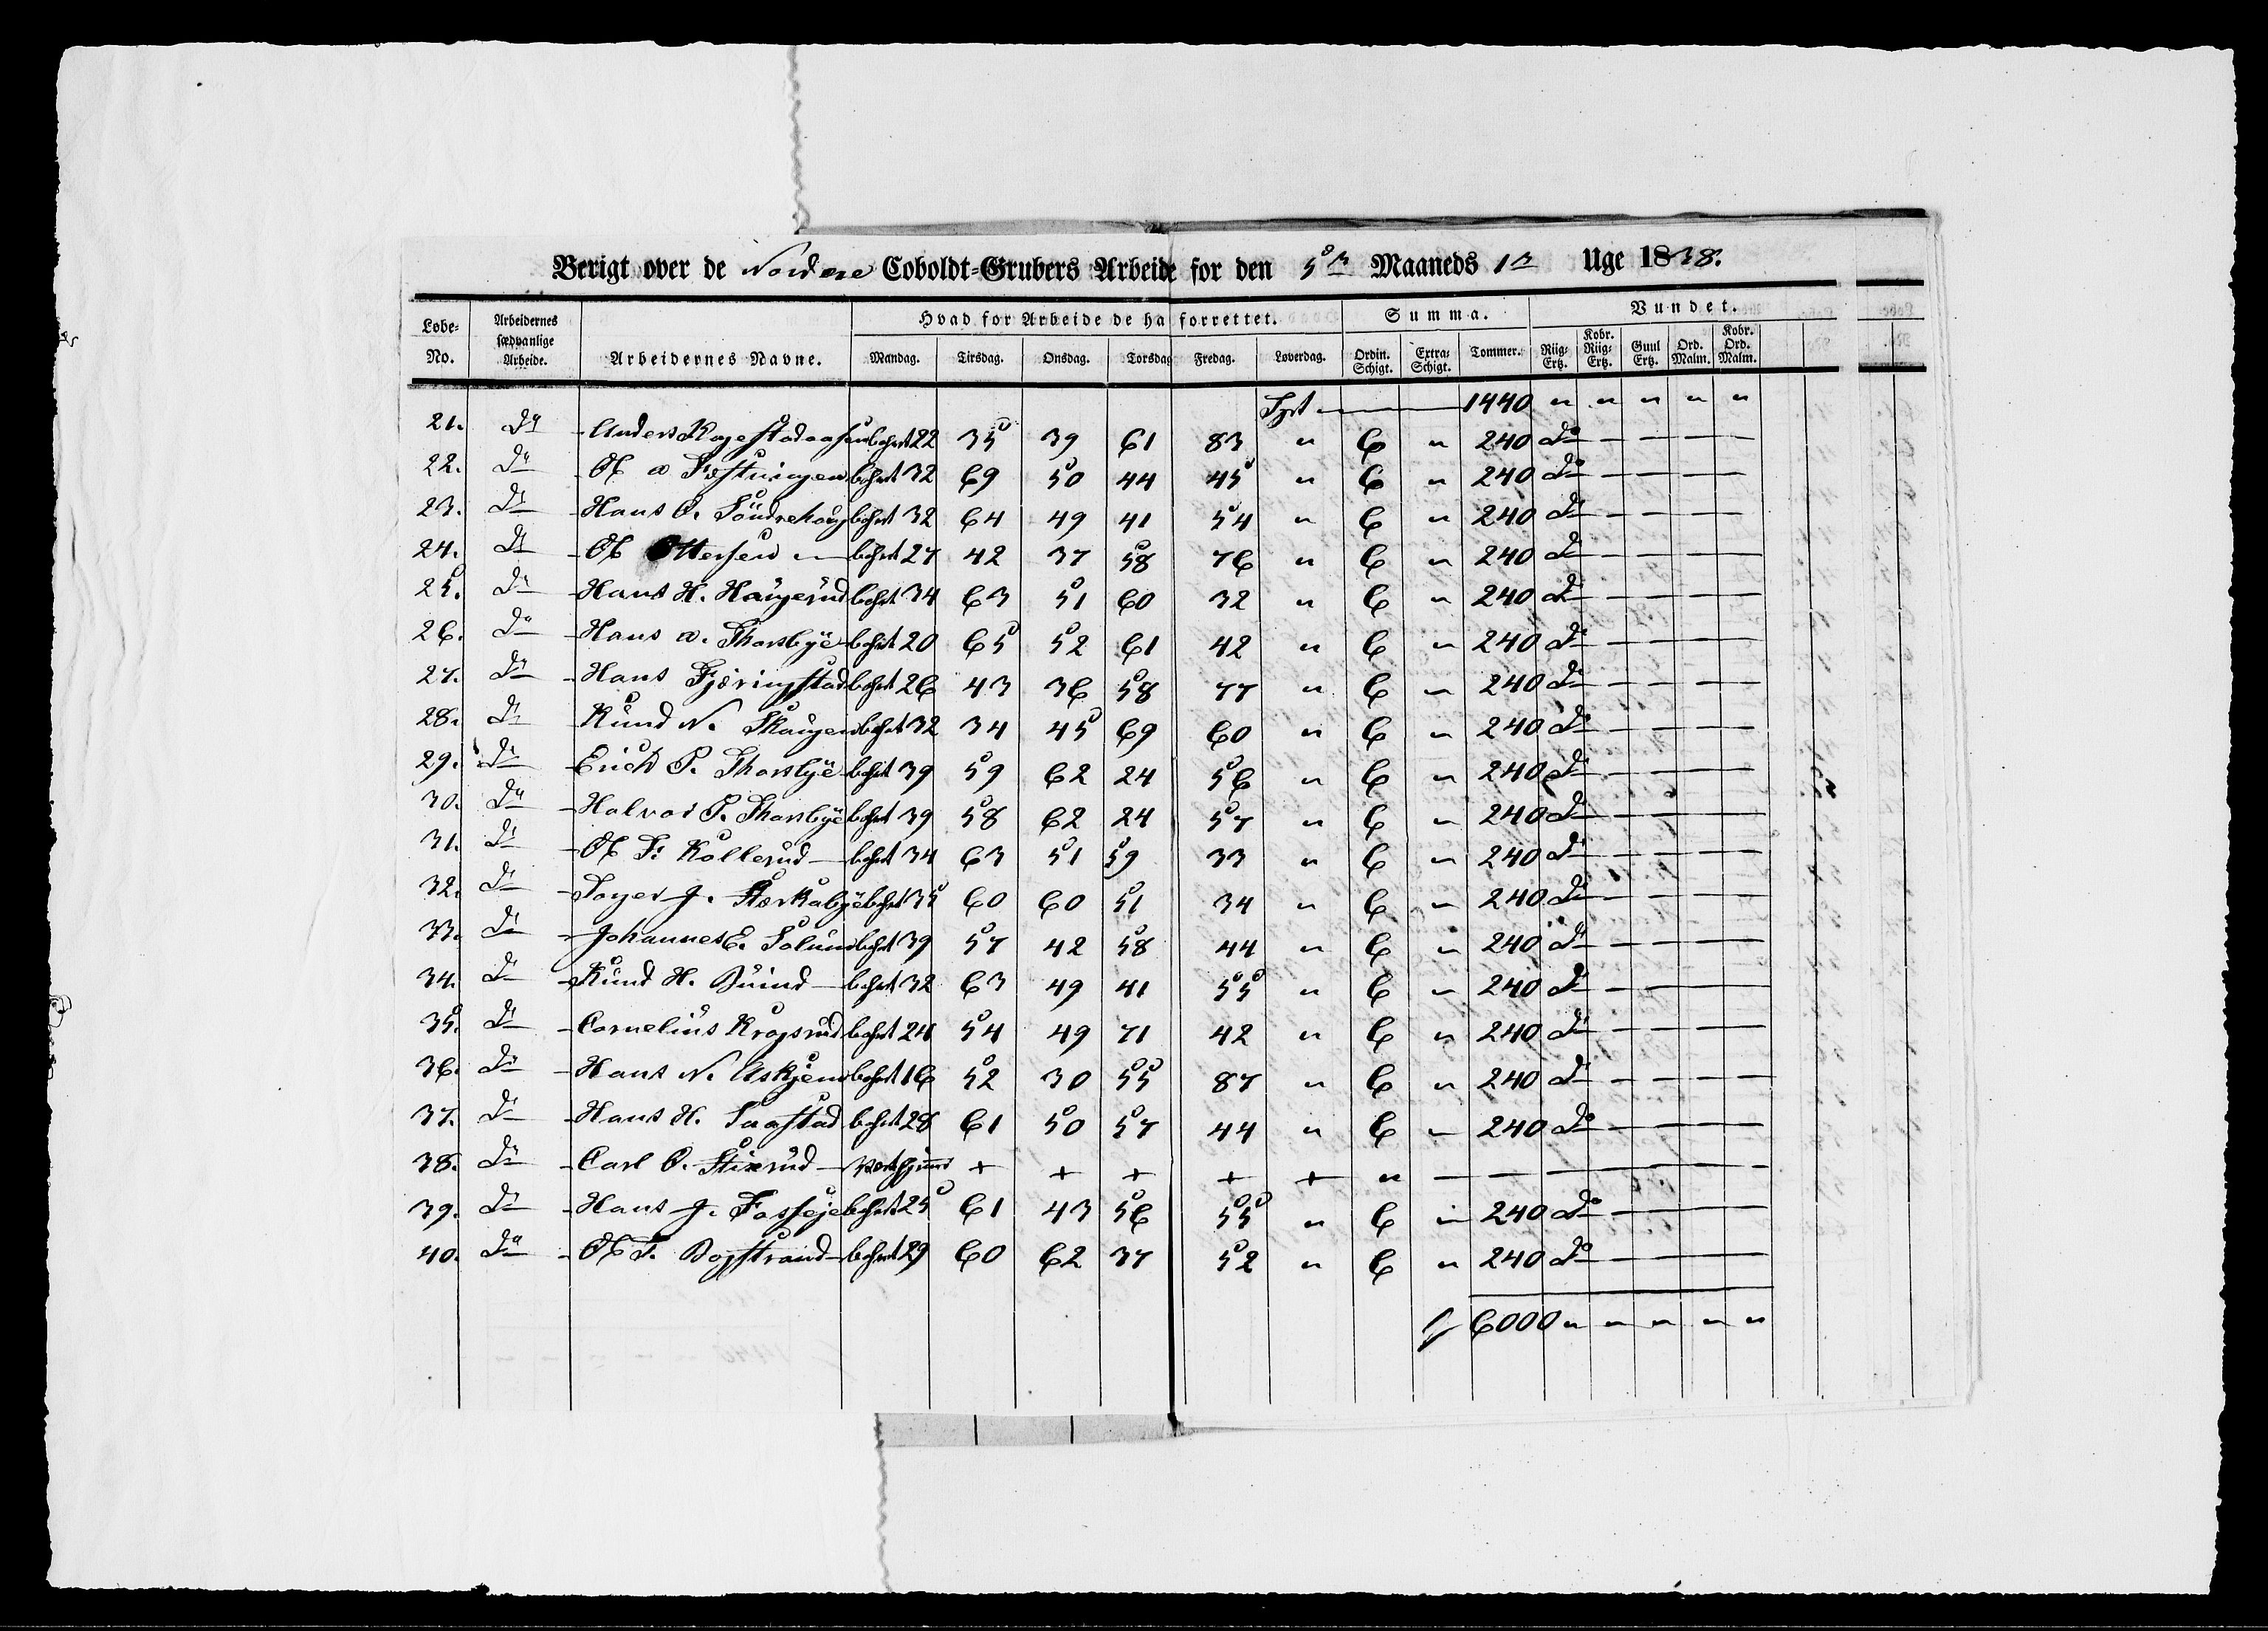 Berigt over de Nordre Coboldt-Grubers Arbeide for den 5te Maaneds 1te Uge 1838.
Løbe-No. Arbeidernes sædvanlige Arbeide. Arbeidernes Navne. Hvad for Arbeide de ha forrettet. Summa. Vundet.
Mandag. Tirsdag. Onsdag. Torsdag Fredag. Løverdag. Ordin. Schigt. Extra-Schigt. Tommer. Riig-Ertz. Kobr. Riig-Ertz. Guul Ertz. Ord. Malm. Kobr. Ord. Malm.
Trpt — 1440 " " " " "
21. Do - Anders bohret 22 35 39 61 83 " 6 " 240 Do — — — —
22. Do - Ol bohret 32 69 50 44 45 " 6 " 240 Do — — — —
23. Do - Hans O. Søndrehoug bohret 32 64 49 41 54 " 6 " 240 Do — — — —
24. Do - Ol Ottersen — bohret 27 42 37 58 76 " 6 " 240 Do — — — —
25. Do - Hans H. Haugerud bohret 34 63 51 60 32 " 6 " 240 Do — — — —
26. Do - Hans A. Thorsbye bohret 20 65 52 61 42 " 6 " 240 Do — — — —
27. Do - Hans Fjeringstad bohret 26 43 36 58 77 " 6 " 240 Do — — — —
28. Do - Knud N. Skaugen bohret 32 34 45 69 60 " 6 " 240 Do — — — —
29. Do - Erich P. Thorsbye bohret 39 59 62 24 56 " 6 " 240 Do — — — —
30. Do - Halvor P. Thorsbye bohret 39 58 62 24 57 " 6 " 240 Do — — — —
31. Do - Ol F. Kollerud — bohret 34 63 51 59 33 " 6 " 240 Do — — — —
32. Do - J. bohret 35 60 60 51 34 " 6 " 240 Do — — — —
33. Do - Johannes E. Solum bohret 39 57 42 58 44 " 6 " 240 Do — — — —
34. Do - Knud H. — bohret 32 63 49 41 55 " 6 " 240 Do — — — —
35. Do - Cornelius Krogsrud bohret 24 54 49 71 42 " 6 " 240 Do — — — —
36. Do - Hans N. Askjem bohret 16 52 30 55 87 " 6 " 240 Do — — — —
37. Do - Hans H. Saastad bohret 28 61 50 57 44 " 6 " 240 Do — — — —
38. Do - Carl O. Stixrud — + + + + + " — — — — — — —
39. Do - Hans J. Fosseje bohret 25 61 43 56 55 " 6 " 240 Do — — — —
40. Do - Ol T. Bogstrand — bohret 29 60 62 37 52 " 6 " 240 Do — — — —
6000 " " " " "